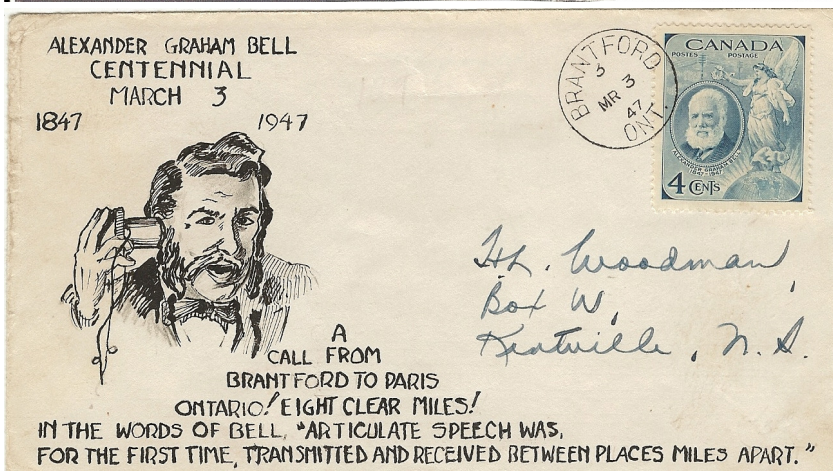 ALEXANDER GRAHAM BELL
CENTENNIAL
MARCH 3
1847 1947
BRANTFORD
3
MR 3
47
ONT.
CANADA
POSTES POSTAGE
ALEXANDER GRAHAM BELL
1847-1947
4 CENTS
H.L. Woodman,
Box W,
Kentville, N.S.
A
CALL FROM
BRANTFORD TO PARIS
ONTARIO! EIGHT CLEAR MILES!
IN THE WORDS OF BELL, "ARTICULATE SPEECH WAS,
FOR THE FIRST TIME, TRANSMITTED AND RECEIVED BETWEEN PLACES MILES APART."